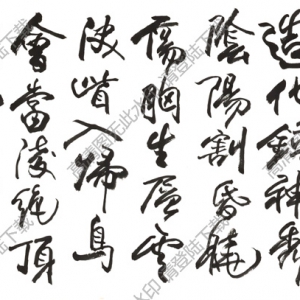 造化鍾神秀
陰陽割昏曉
蕩胸生層雲
決眥入歸鳥
會當凌絕頂
高清图无此水印 请登陆下载